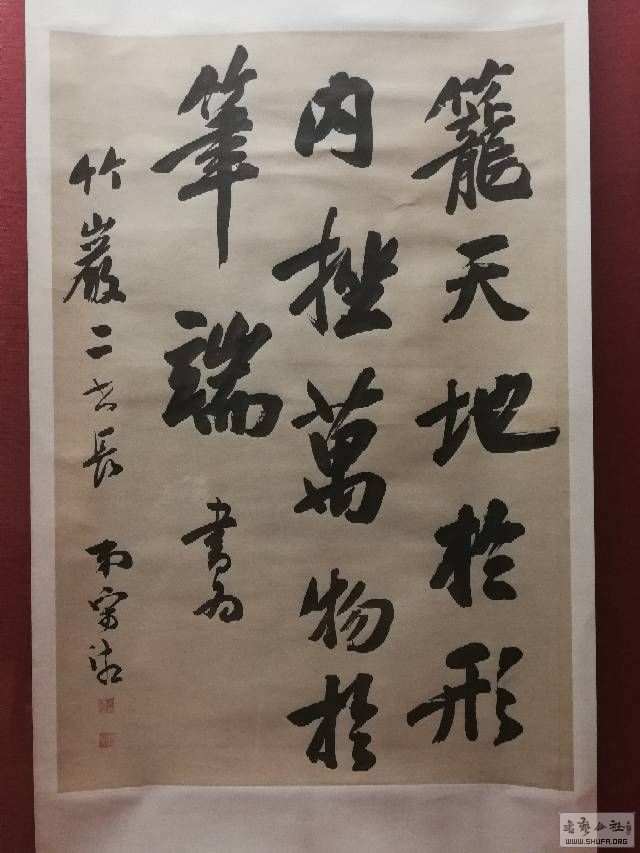 籠天地於形
内挫萬物於
筆端 書為
竹巖二世長 宋湘
書藝公社
WWW.SHUFA.ORG